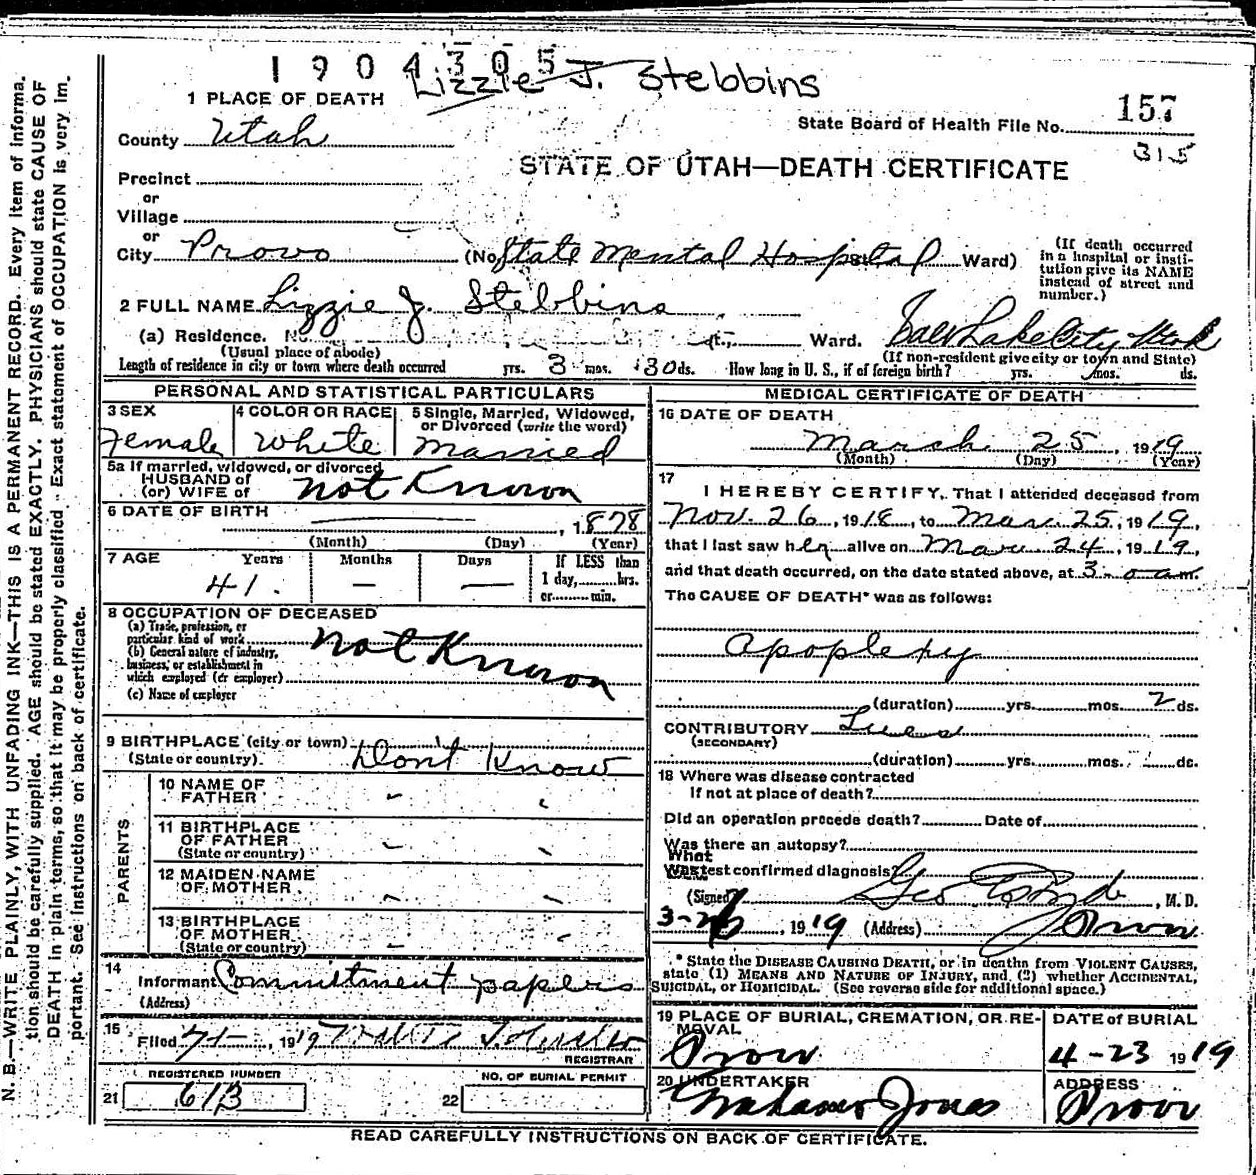 1904305
Lizzie J. Stebbins
1 PLACE OF DEATH
157
County Utah
State Board of Health File No.
315
STATE OF UTAH—DEATH CERTIFICATE
Precinct
or
Village
or
City Provo (No. State Mental Hospital Ward)
(If death occurred
in a hospital or insti-
tution give its NAME
instead of street and
number.)
2 FULL NAME Lizzie J. Stebbins
(a) Residence. No. St., Ward. Salt Lake City Utah
(Usual place of abode)
(If non-resident give city or town and State)
Length of residence in city or town where death occurred yrs. 3 mos. 30 ds. How long in U. S., if of foreign birth? yrs. mos. ds.
PERSONAL AND STATISTICAL PARTICULARS
3 SEX
Female
4 COLOR OR RACE
White
5 Single, Married, Widowed,
or Divorced (write the word)
Married
5a If married, widowed, or divorced
HUSBAND of
(or) WIFE of not Known
6 DATE OF BIRTH
, 1878
(Month) (Day) (Year)
7 AGE Years Months Days
If LESS than
1 day,........hrs.
or.........min.
41. — —
8 OCCUPATION OF DECEASED
(a) Trade, profession, or
particular kind of work
(b) General nature of industry,
business, or establishment in
which employed (or employer)
not Known
(c) Name of employer
9 BIRTHPLACE (city or town)
(State or country). Don't Know
PARENTS
10 NAME OF
FATHER
11 BIRTHPLACE
OF FATHER
(State or country)
12 MAIDEN NAME
OF MOTHER
13 BIRTHPLACE
OF MOTHER
(State or country)
14
Informant Commitment papers
(Address)
15
Filed , 1919
REGISTRAR
REGISTERED NUMBER
21 613
NO. OF BURIAL PERMIT
22
MEDICAL CERTIFICATE OF DEATH
16 DATE OF DEATH
March 25, 1919
(Month) (Day) (Year)
17
I HEREBY CERTIFY, That I attended deceased from
Nov. 26, 1918, to Mar. 25, 1919,
that I last saw her alive on Mar. 24, 1919,
and that death occurred, on the date stated above, at 3- a m.
The CAUSE OF DEATH* was as follows:
Apoplexy
(duration) yrs. mos. 2 ds.
CONTRIBUTORY Lues
(SECONDARY)
(duration) yrs. mos. ds.
18 Where was disease contracted
If not at place of death?
Did an operation precede death? Date of
Was there an autopsy?
What
test confirmed diagnosis?
(Signed) Geo , M. D.
3-26, 1919 (Address) Provo
* State the DISEASE CAUSING DEATH, or in deaths from VIOLENT CAUSES,
state (1) MEANS AND NATURE OF INJURY, and (2) whether ACCIDENTAL,
SUICIDAL, or HOMICIDAL. (See reverse side for additional space.)
19 PLACE OF BURIAL, CREMATION, OR RE-
MOVAL
Provo
DATE of BURIAL
4-23 1919
20 UNDERTAKER
Jones
ADDRESS
Provo
READ CAREFULLY INSTRUCTIONS ON BACK OF CERTIFICATE.
N. B.—WRITE PLAINLY, WITH UNFADING INK—THIS IS A PERMANENT RECORD. Every item of informa-
tion should be carefully supplied. AGE should be stated EXACTLY. PHYSICIANS should state CAUSE OF
DEATH in plain terms, so that it may be properly classified. Exact statement of OCCUPATION is very im-
portant. See instructions on back of certificate.